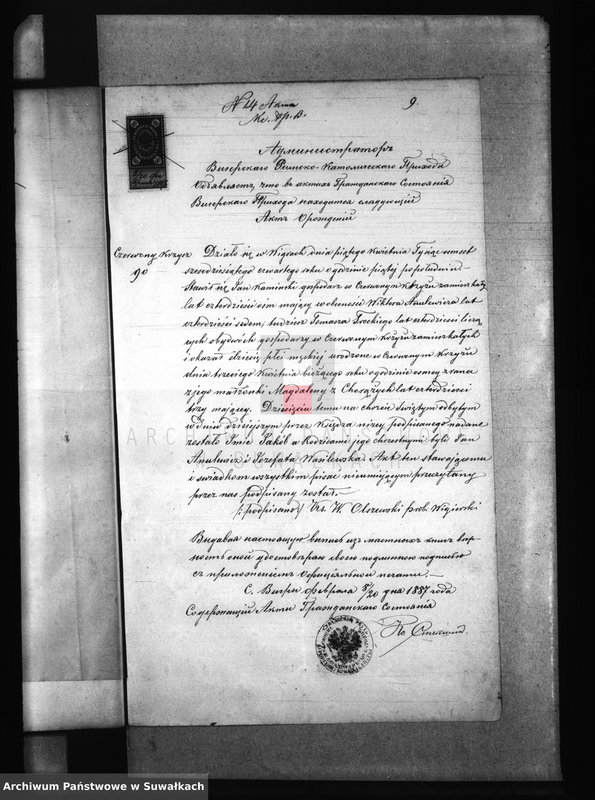 № 4 Акта 9.
Администраторъ
Вигерскаго Римско-Католическаго Прихода
Объявляетъ, что въ актахъ Гражданскаго Состоянія
Вигерскаго Прихода находится слѣдующій
Актъ о рожденіи
Czerwony Krzyż
90
Działo się w Wigrach dnia piątego Kwietnia Tysiąc ośmset
sześćdziesiątego czwartego roku o godzinie piątej popołudniu.
Stawił się Jan Kamiński gospodarz w Czerwonym Krzyżu zamieszkały
lat czterdzieści ośm mający w obecności Wiktora Anulewicza lat
czterdzieści siedem, tudzież Tomasza Trockiego lat czterdzieści liczą
cych obydwóch gospodarzy w Czerwonym Krzyżu zamieszkałych
i okazał dziecię płci męzkiej urodzone w Czerwonym Krzyżu
dnia trzeciego Kwietnia bieżącego roku o godzinie ósmej z rana
z jego małżonki Magdaleny z Chorążych lat czterdzieści
trzy mającej. Dziecięciu temu na chrzcie świętym odbytym
w dniu dzisiejszym przez Księdza niżej podpisanego nadane
zostało Imie Jakób a Rodzicami jego chrzestnymi byli Jan
Anulewicz i Jozefata Wasilewska. Akt ten stawającemu
i świadkom wszystkim pisać nieumiejącym przeczytany
przez nas podpisany został.
/:podpisano:/ Xs. W. Olszewski prob. Wigierski
Выдавая настоящую выпись изъ метичныхъ книгъ вѣр-
ность оной удостовѣряю своею подлинною подписью
съ приложеніемъ Официальной печати.
С. Вигры Февраля 8/20 дня 1887 года
Содержащій Акты Гражданскаго Состоянія
Archiwum Państwowe w Suwałkach